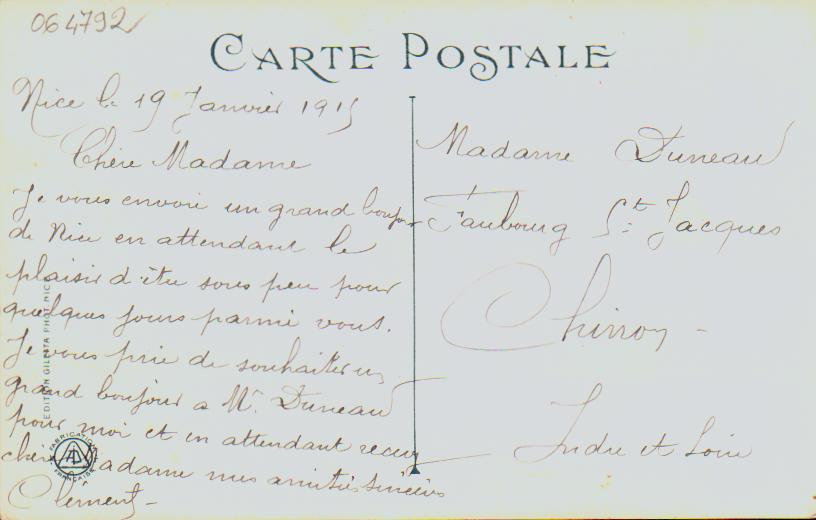 064792
CARTE POSTALE
Nice le 19 Janvier 1915
Chère Madame
Je vous envoie un grand bonjour
de Nice en attendant le
plaisir d'être sous peu pour
quelques jours parmi vous.
Je vous prie de souhaiter un
grand bonjour a Mr. Duneau
pour moi et en attendant recevez
chère Madame mes amitiés sincères
Clement
Madame Duneau
Faubourg St. Jacques
Chinon -
Indre et Loire
EDITION GILETTA PHOT. NICE
FABRICATION
FRANÇAISE